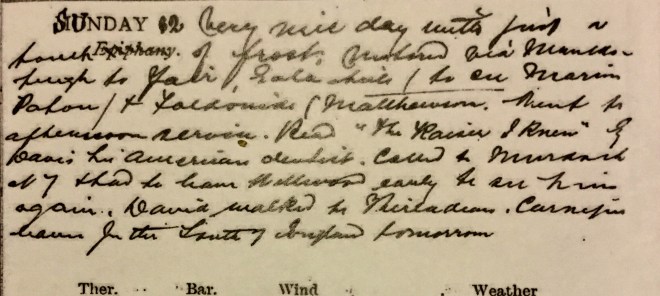 SUNDAY 12 Very nice day with just a
Epiphany. touch of frost. Motored via
to Fair, Galashiels (to see Marion
Paton) & (Matthewson. Went to
afternoon service. Read "The Kaiser I Knew" by
Davis his American dentist. Called to Murdoch
at 7 & had to leave early to see him
again. David walked to Thirladean.
leaves for the South of England tomorrow
Ther. Bar. Wind Weather